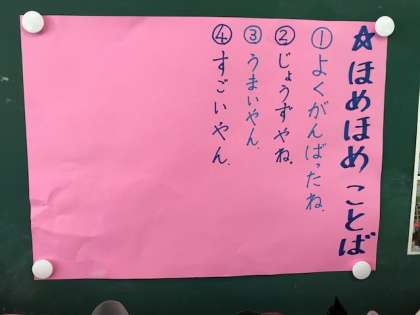 ☆ほめほめことば
①よくがんばったね。
②じょうずやね。
③うまいやん。
④すごいやん。